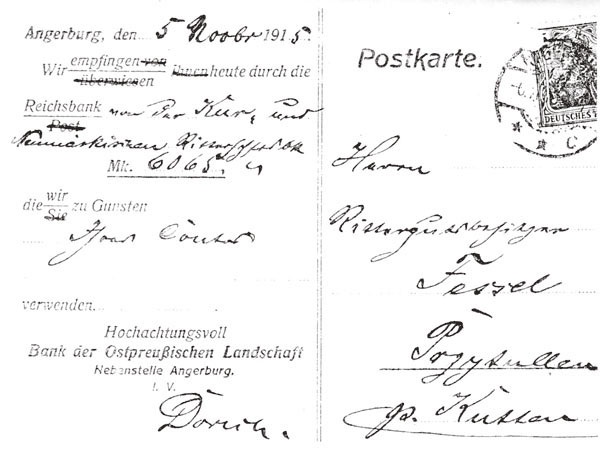 Angerburg, den 5 Novbr 1915.
Wir empfingen von ihnen heute durch die
überwiesen
Reichsbank von der Kur- und
Post
Neumärkischen Ritterschftl. Bk
Mk. 6065.
die wir zu Gunsten
Sie
Ihres Contos
verwenden.
Hochachtungsvoll
Bank der Ostpreußischen Landschaft
Nebenstelle Angerburg.
I. V.
Postkarte.
DEUTSCHES
* * C
Herrn
Rittergutsbesitzer
Fessel
Przytullen
p. Kutten